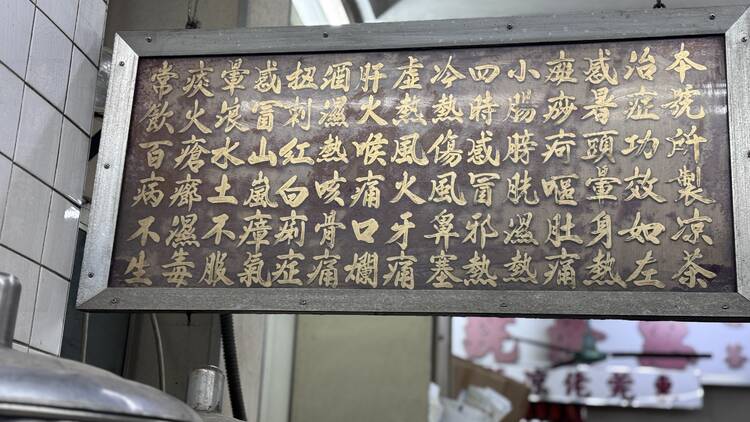 本號所製凉茶
治症功效如左
感暑頭暈身熱
斑痧疴嘔肚痛
小腸膀胱濕熱
四時感冒邪熱
冷熱傷風鼻塞
虛熱風火牙痛
肝火喉痛口爛
酒濕熱咳骨痛
扭刺紅白痢症
感冒山嵐瘴氣
暈浪水土不服
痰火瘡癤濕毒
常飲百病不生